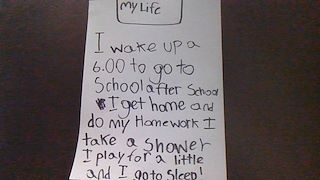 My Life
I wake up a
6.00 to go to
School after School
I get home and
do my Homework I
take a Shower
I play for a little
and I go to Sleep!